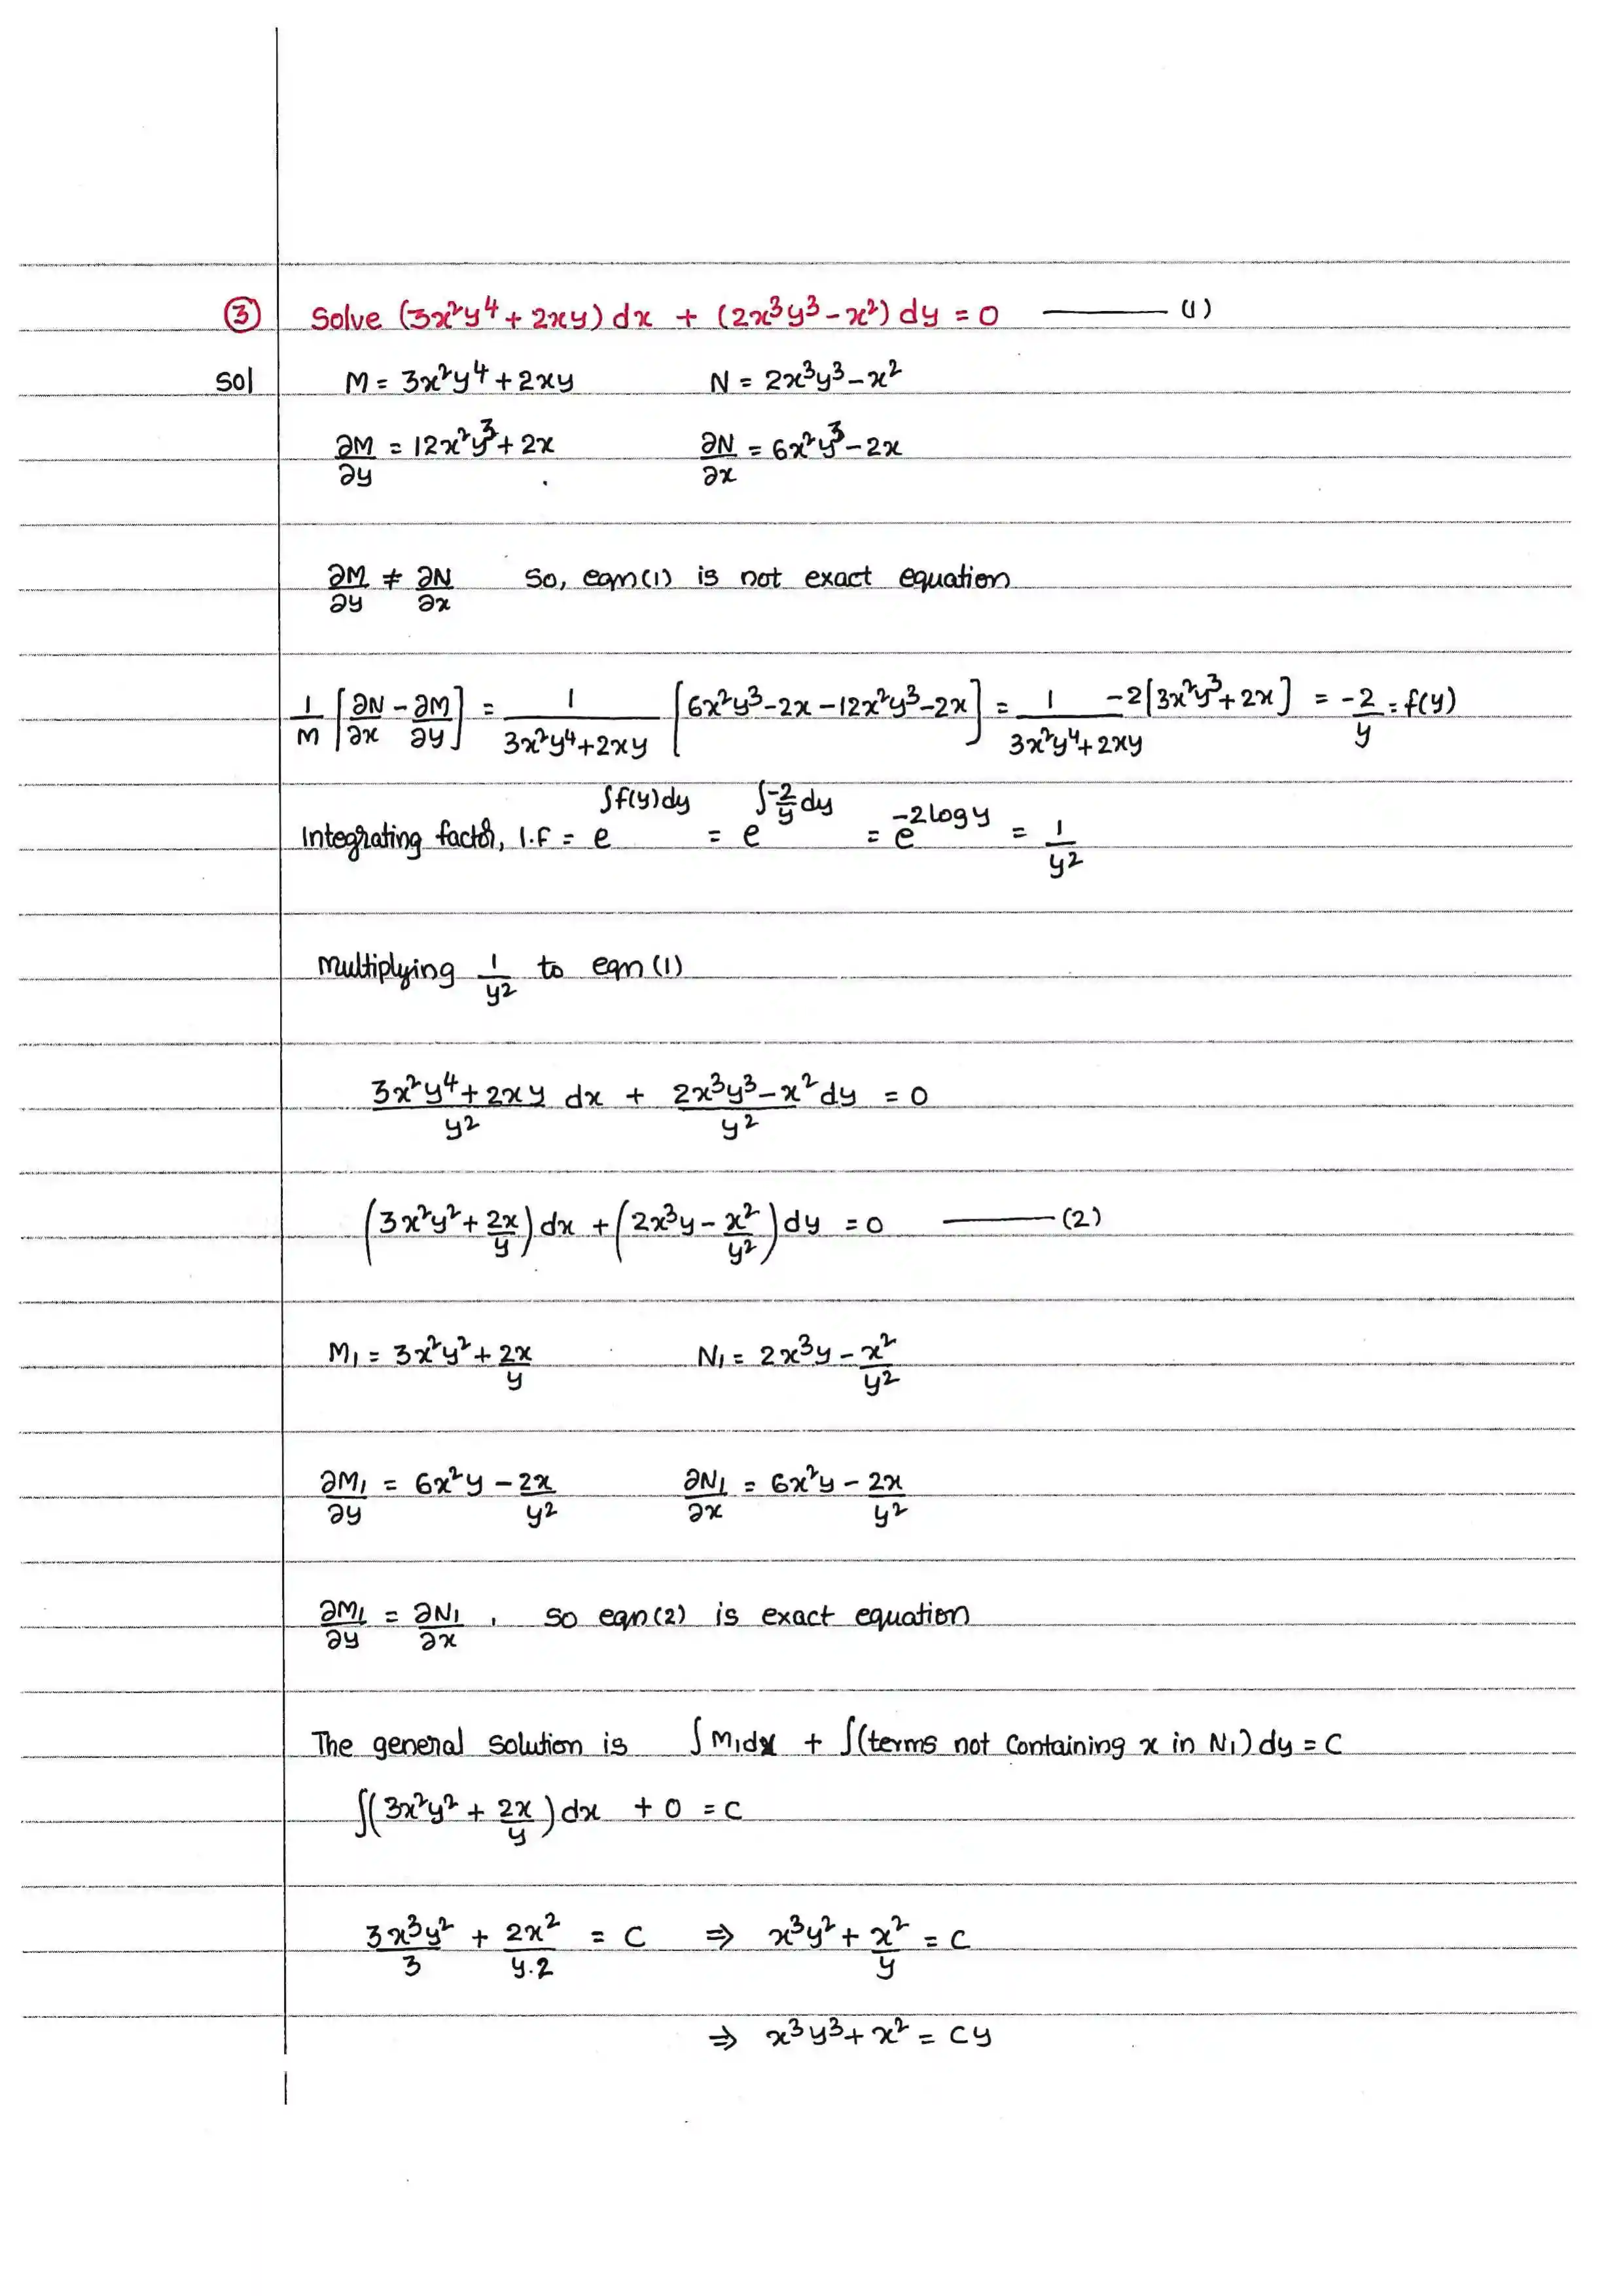 ③ Solve (3x²y⁴ + 2xy) dx + (2x³y³ - x²) dy = 0 ——— (1)
Sol M = 3x²y⁴ + 2xy N = 2x³y³ - x²
∂M/∂y = 12x²y³ + 2x ∂N/∂x = 6x²y³ - 2x
∂M/∂y ≠ ∂N/∂x So, eqn(1) is not exact equation
1/M [∂N/∂x - ∂M/∂y] = 1/(3x²y⁴+2xy) [6x²y³-2x-12x²y³-2x] = 1/(3x²y⁴+2xy) -2[3x²y³+2x] = -2/y = f(y)
Integrating factor, I.F = e^∫f(y)dy = e^∫-2/y dy = e^-2logy = 1/y²
Multiplying 1/y² to eqn (1)
(3x²y⁴+2xy)/y² dx + (2x³y³-x²)/y² dy = 0
(3x²y² + 2x/y) dx + (2x³y - x²/y²) dy = 0 ——— (2)
M₁ = 3x²y² + 2x/y N₁ = 2x³y - x²/y²
∂M₁/∂y = 6x²y - 2x/y² ∂N₁/∂x = 6x²y - 2x/y²
∂M₁/∂y = ∂N₁/∂x, so eqn(2) is exact equation
The general solution is ∫M₁dx + ∫(terms not containing x in N₁) dy = C
∫(3x²y² + 2x/y) dx + 0 = C
3x³y²/3 + 2x²/y.2 = C ⇒ x³y² + x²/y = C
⇒ x³y³ + x² = Cy